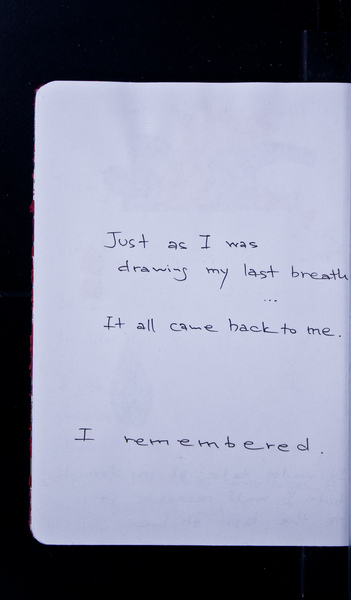 Just as I was
drawing my last breath
...
It all came back to me.
I remembered.